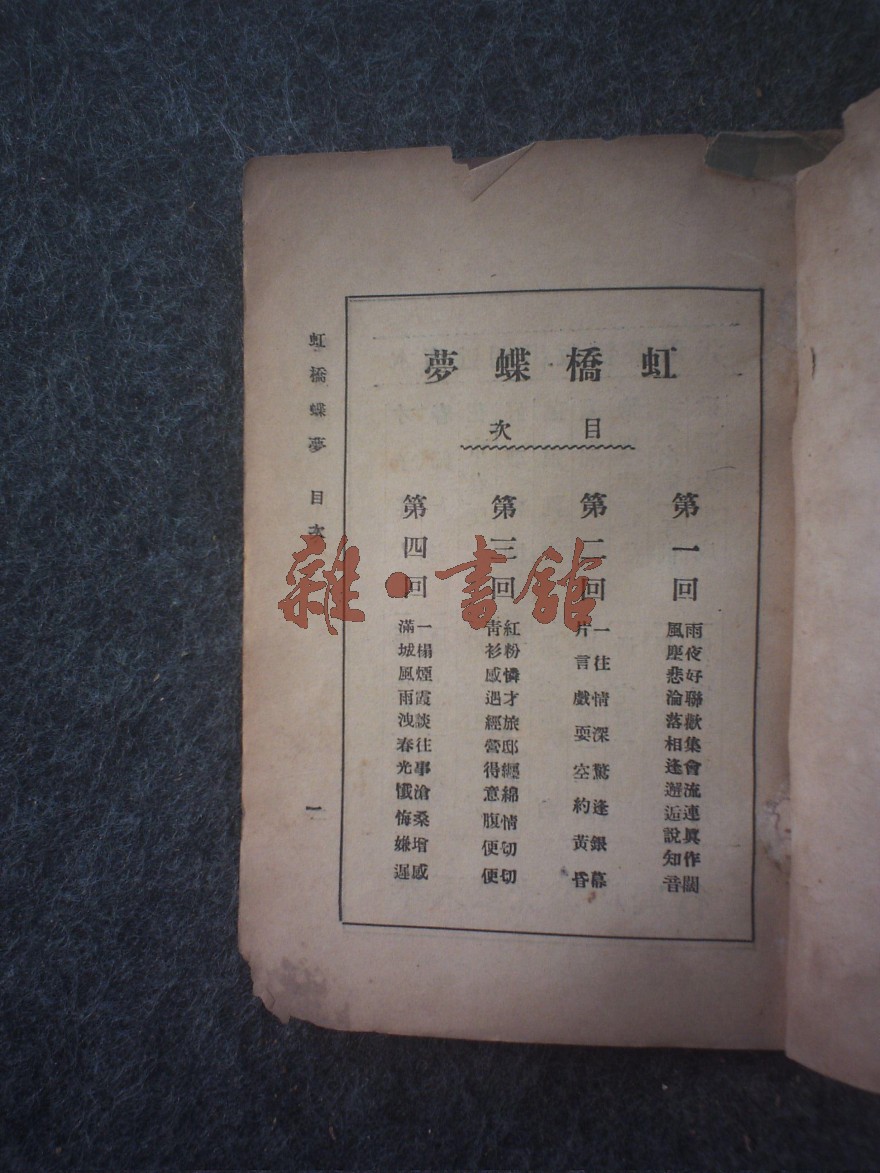 虹橋蝶夢
目次
第一回
雨夜好聯歡集會流連興作闌
風塵悲淪落相逢邂逅說知音
第二回
一往情深驚逢銀幕
片言戲耍空約黃昏
第三回
紅粉憐才旅邸纏綿情切切
靑衫感遇經營得意腹便便
第四回
一榻煙霞談往事滄桑增感
滿城風雨洩春光懺悔嫌遲
虹橋蝶夢 目次
一
雜·書館